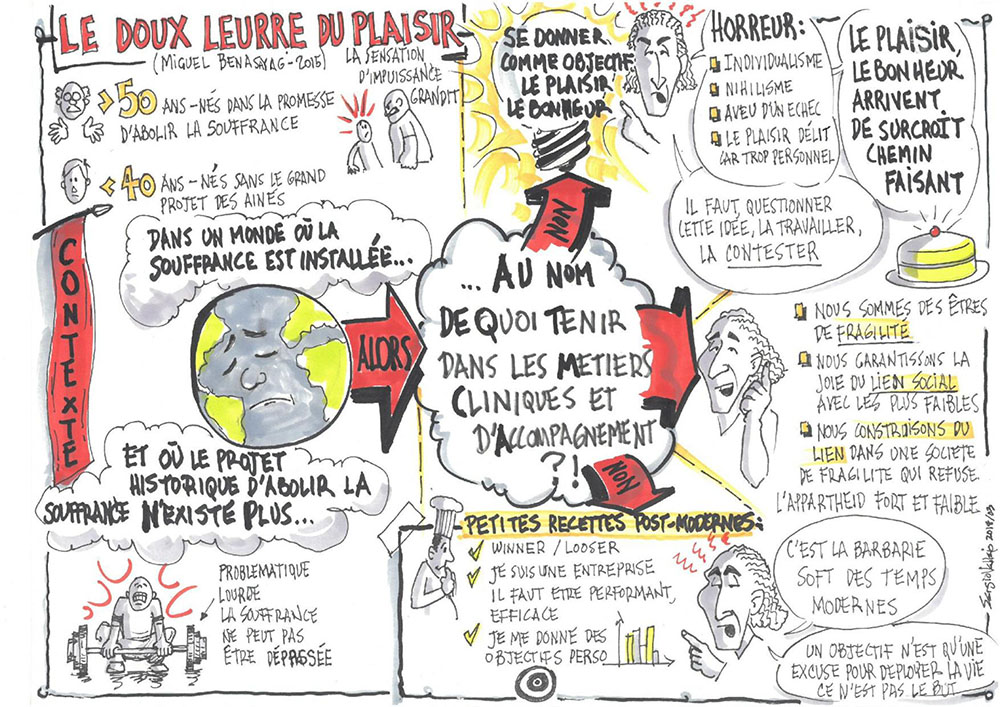 LE DOUX LEURRE DU PLAISIR
(MIGUEL BENASAYAG-2015)
LA SENSATION
D'IMPUISSANCE
GRANDIT
> 50 ANS - NÉS DANS LA PROMESSE
D'ABOLIR LA SOUFFRANCE
< 40 ANS - NÉS SANS LE GRAND
PROJET DES AINÉS
CONTEXTE
DANS UN MONDE OÙ LA
SOUFFRANCE EST INSTALLÉE...
ET OÙ LE PROJET
HISTORIQUE D'ABOLIR LA
SOUFFRANCE N'EXISTE PLUS...
PROBLEMATIQUE
LOURDE
LA SOUFFRANCE
NE PEUT PAS
ÊTRE DÉPASSÉE
ALORS
... AU NOM
DE QUOI TENIR
DANS LES METIERS
CLINIQUES ET
D'ACCOMPAGNEMENT
?!
NON
SE DONNER
COMME OBJECTIF
LE PLAISIR
LE BONHEUR
HORREUR:
INDIVIDUALISME
NIHILISME
AVEU D'UN ECHEC
LE PLAISIR DÉLIT
CAR TROP PERSONNEL
IL FAUT QUESTIONNER
CETTE IDÉE, LA TRAVAILLER,
LA CONTESTER
LE PLAISIR,
LE BONHEUR
ARRIVENT
DE SURCROIT
CHEMIN
FAISANT
NOUS SOMMES DES ÊTRES
DE FRAGILITÉ
NOUS GARANTISSONS LA
JOIE DU LIEN SOCIAL
AVEC LES PLUS FAIBLES
NOUS CONSTRUISONS DU
LIEN DANS UNE SOCIETE
DE FRAGILITE QUI REFUSE
L'APPARTHEID FORT ET FAIBLE
NON
PETITES RECETTES POST-MODERNES:
WINNER / LOOSER
JE SUIS UNE ENTREPRISE
IL FAUT ETRE PERFORMANT,
EFFICACE
JE ME DONNE DES
OBJECTIFS PERSO
C'EST LA BARBARIE
SOFT DES TEMPS
MODERNES
UN OBJECTIF N'EST QU'UNE
EXCUSE POUR DEPLOYER LA VIE
CE N'EST PAS LE BUT